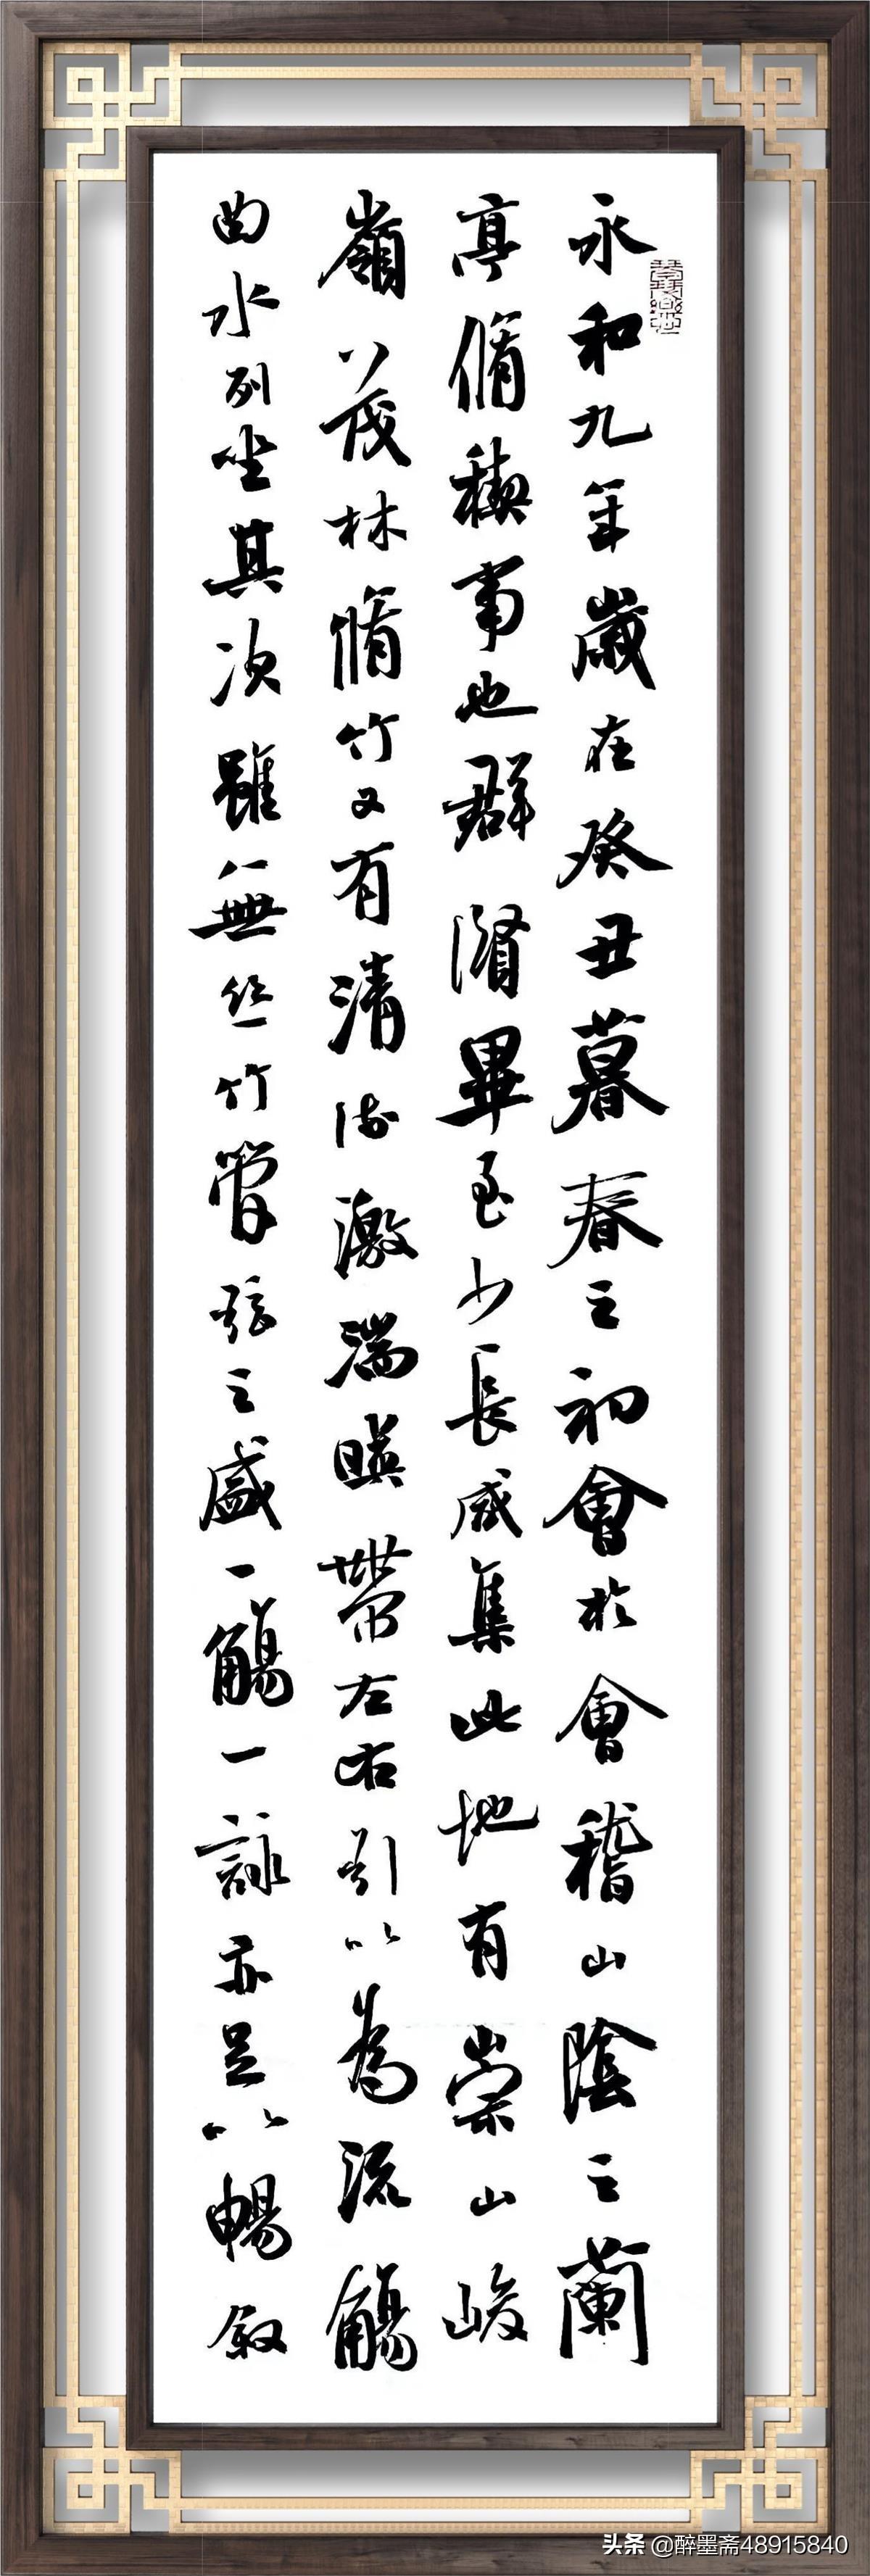 永和九年歲在癸丑暮春之初會於會稽山陰之蘭
亭脩稧事也群賢畢至少長咸集此地有崇山峻
嶺茂林脩竹又有清流激湍暎帶左右引以為流觴
曲水列坐其次雖無絲竹管弦之盛一觴一詠亦足以暢叙
头条 @醉墨斋48915840